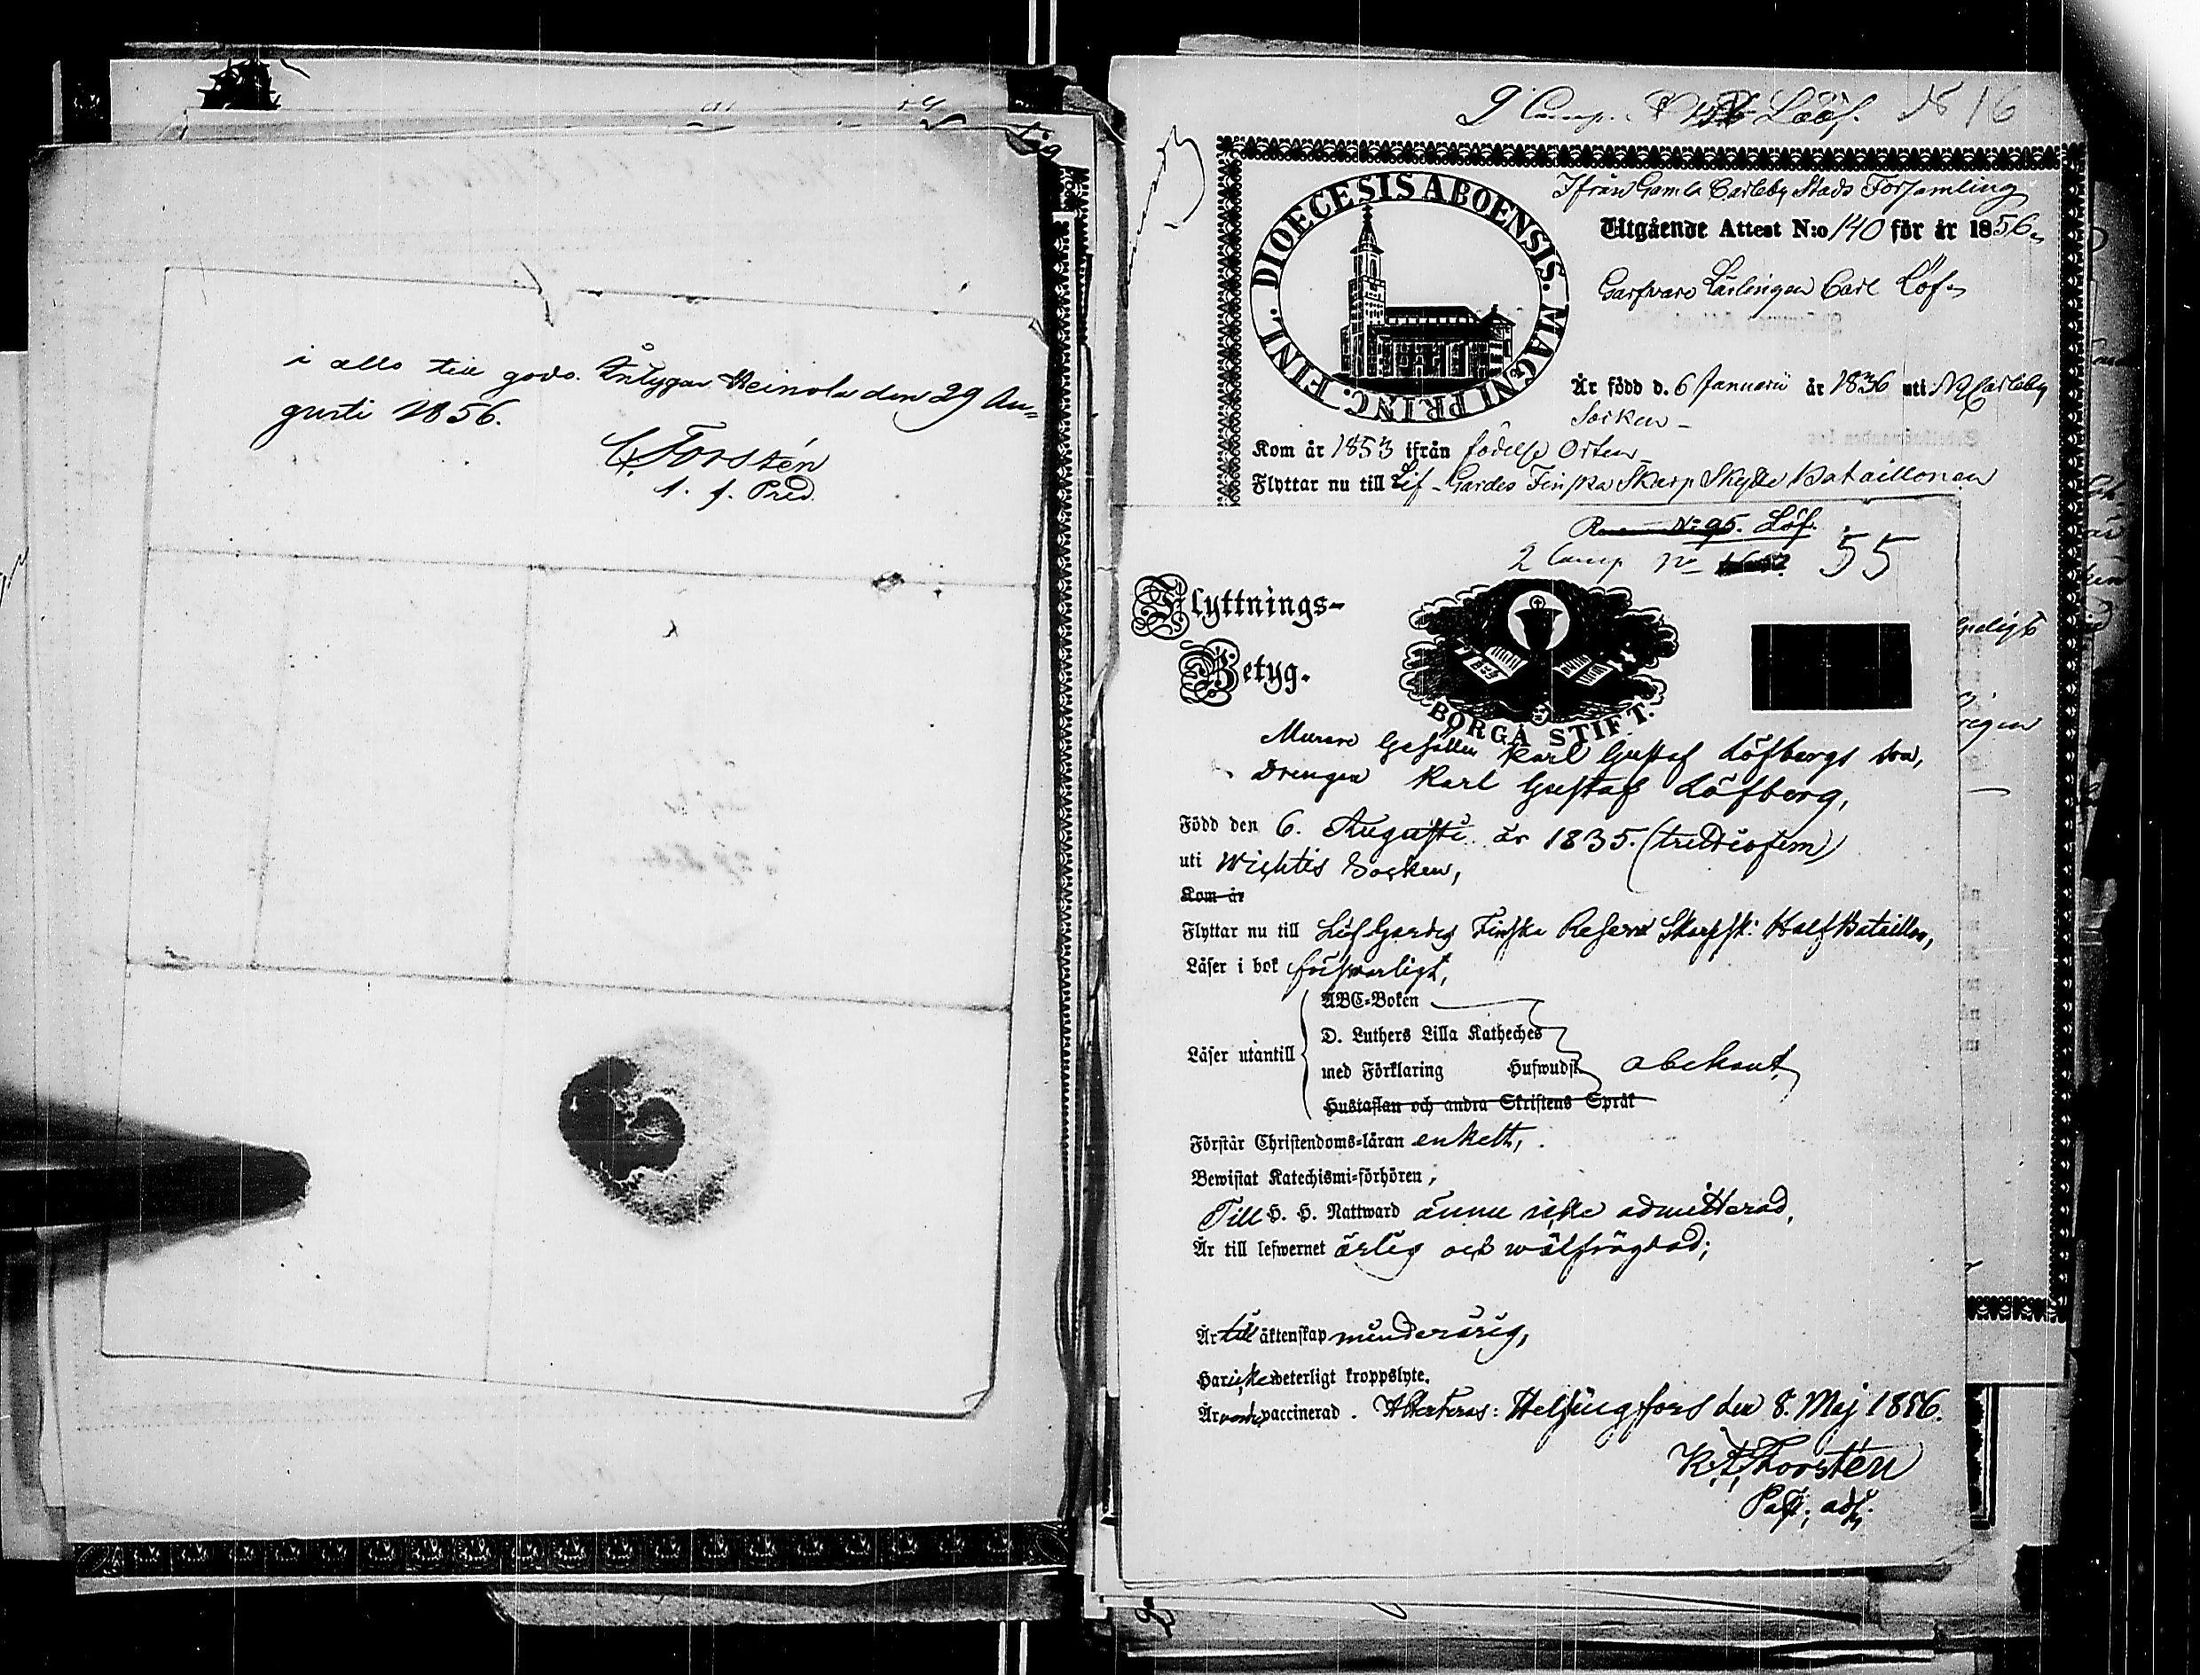 i allo till godo. Intygar Heinola den 29 Au=
gusti 1856.
C. Forstén
v. f. Pred.
2 Camp. Lööf. N 16
Ifrån Gamla Carleby Stads Församling
DIOECESIS ABOENSIS. MAGNI PRINC. FINL.
Utgående Attest N:o 140 för år 1856.
Garfvare Lärlingen Carl Löf
Är född d. 6 Januarii år 1836 uti N Carleby
Socken
Kom år 1853 ifrån födelse Orten
Flyttar nu till Lif-Gardes Finska Skarp Skytte Bataillonen
No 95. Löf.
2 Camp No 55
Flyttnings-
Betyg.
BORGÅ STIFT.
Murare Gesällen Karl Gustaf Löfbergs son,
Drengen Karl Gustaf Löfberg,
Född den 6. Augusti år 1835. (trettiofem)
uti Wichtis Socken,
Kom år
Flyttar nu till Lif Gardes Finska Reserv Skarpsk: Half Bataillon,
Läser i bok försvarligt,
ABC-Boken
D. Luthers Lilla Katheches
Läser utantill
med Förklaring Hufwudst
obekant,
Hustaflan och andra Skriftens Språk
Förstår Christendoms-läran enkelt,
Bewistat Katechismi-förhören,
Till H. H. Nattward ännu icke admitterad,
Är till lefwernet ärlig och wälfrägdad;
Är till äktenskap minderårig,
Har icke weterligt kroppslyte.
Är vaccinerad. Attesteras: Helsingfors den 8. Maj 1856.
K. A. Thorstén
Past; adj.